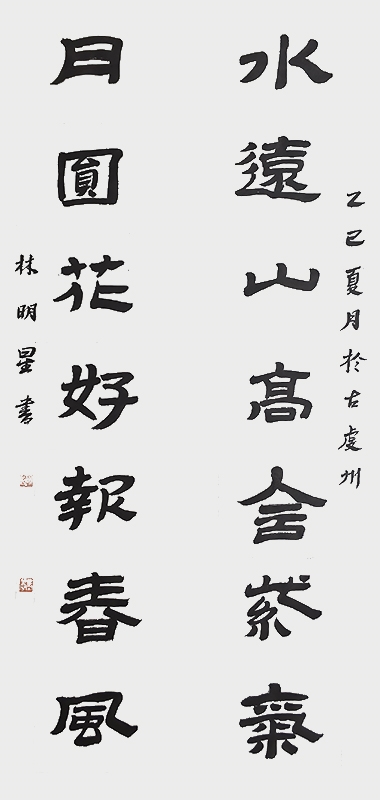 乙巳夏月於古虔州
水遠山高含紫氣
月圓花好報春風
林明星書